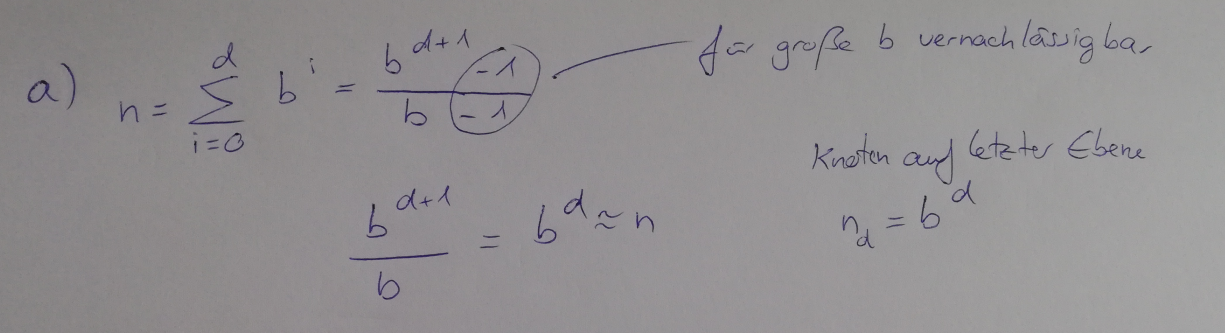 a) n = \sum_{i=0}^{d} b^i = \frac{b^{d+1} - 1}{b - 1} für große b vernachlässigbar
Knoten auf letzter Ebene
\frac{b^{d+1}}{b} = b^d ≈ n
n_d = b^d